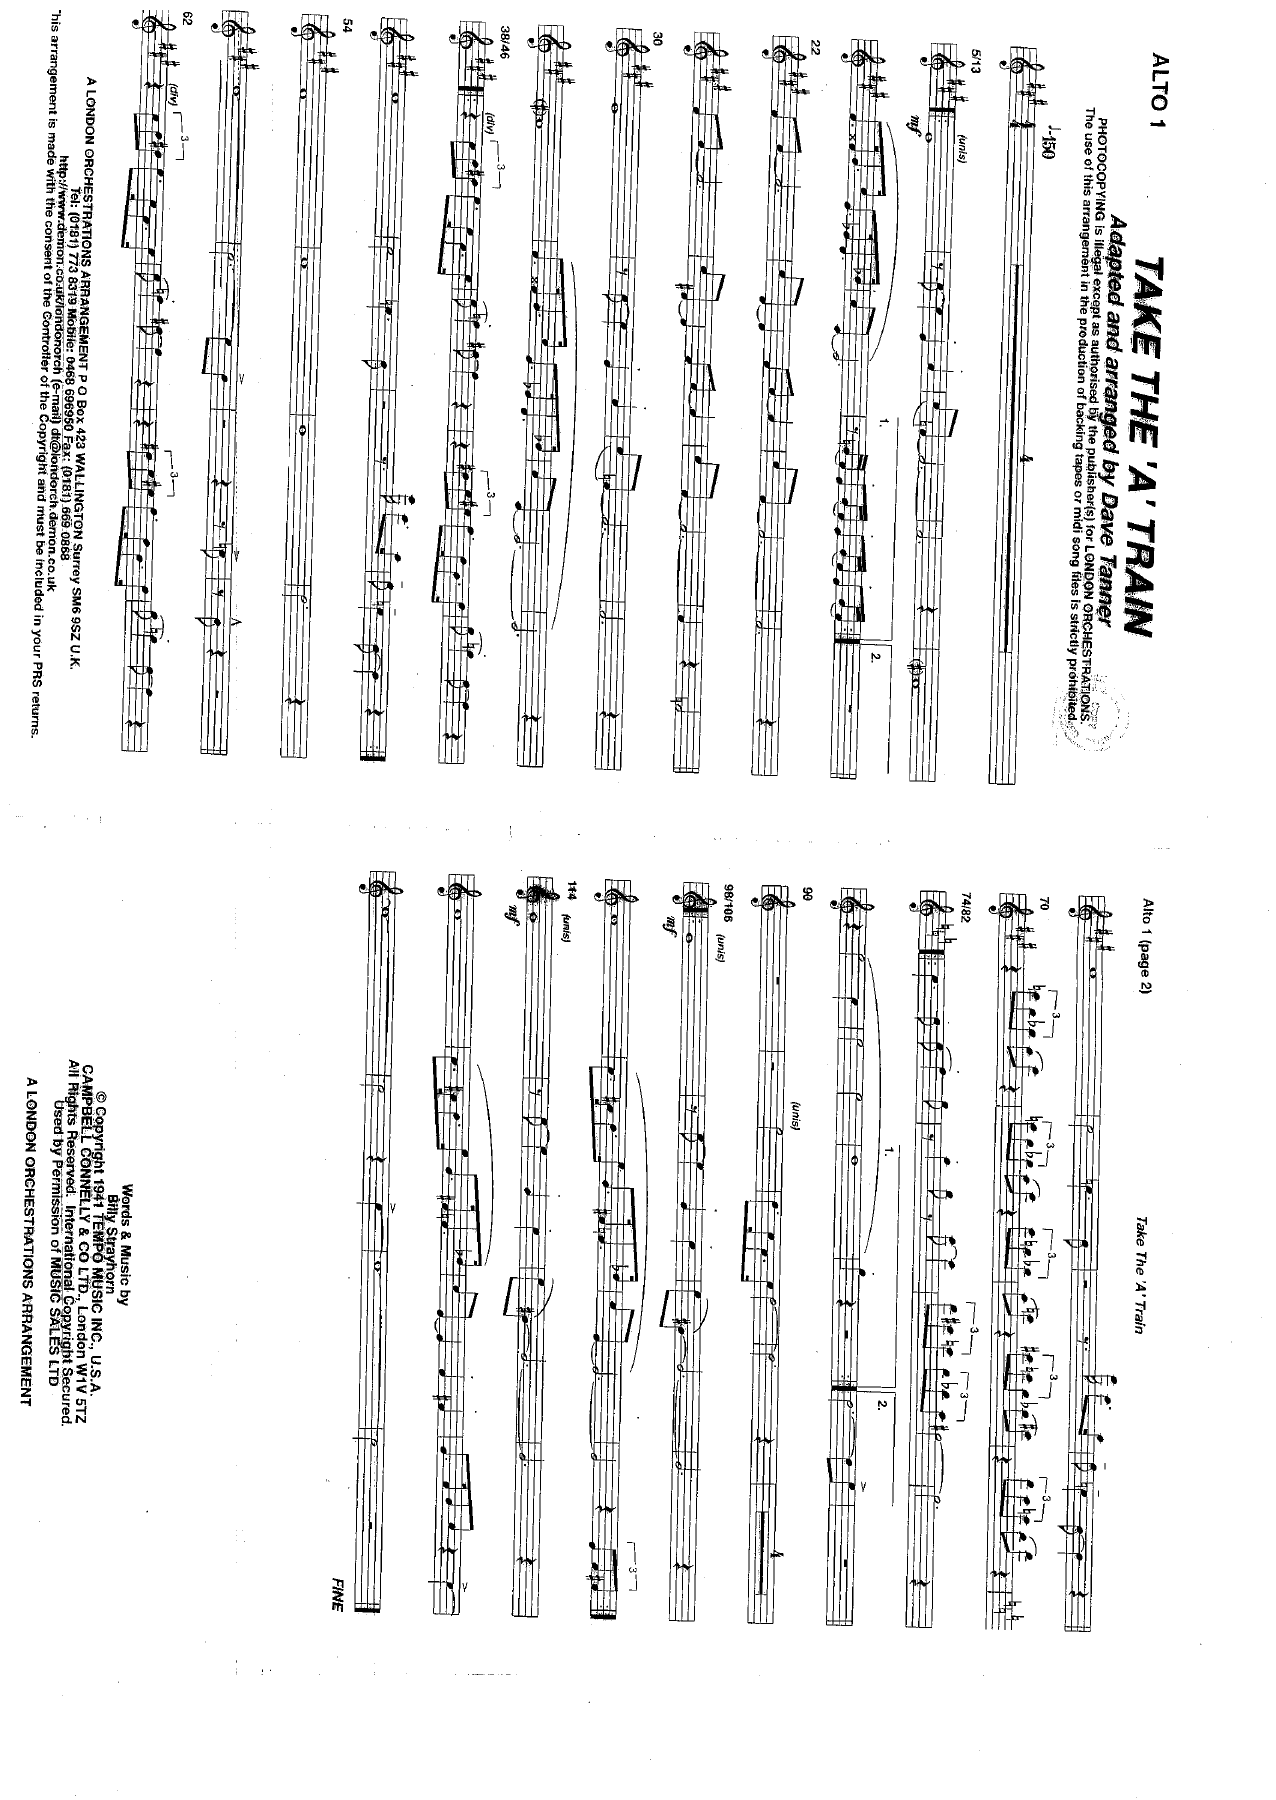 ALTO 1
TAKE THE 'A' TRAIN
Adapted and arranged by Dave Tanner
PHOTOCOPYING is illegal except as authorised by the publisher(s) for LONDON ORCHESTRATIONS.
The use of this arrangement in the production of backing tapes or midi song files is strictly prohibited.
♩=150
4
5/13
(unis)
mf
1.
2.
22
30
38/46
(div)
3
3
54
62
(div)
3
3
A LONDON ORCHESTRATIONS ARRANGEMENT P O Box 423 WALLINGTON Surrey SM6 9SZ U.K.
Tel: (0181) 773 8319 Mobile: 0468 696950 Fax: (0181) 669 0868
http://www.demon.co.uk/londonorch (e-mail) dt@londorch.demon.co.uk
his arrangement is made with the consent of the Controller of the Copyright and must be included in your PRS returns.
Alto 1 (page 2)
Take The 'A' Train
70
3
3
3
3
3
74/82
3
3
1.
2.
90
(unis)
4
98/106
(unis)
mf
3
114
(unis)
mf
FINE
Words & Music by
Billy Strayhorn
© Copyright 1941 TEMPO MUSIC INC., U.S.A.
CAMPBELL CONNELLY & CO LTD., London W1V 5TZ
All Rights Reserved. International Copyright Secured.
Used by Permission of MUSIC SALES LTD
A LONDON ORCHESTRATIONS ARRANGEMENT